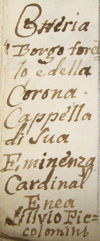 Osteria
Borgo fora
to e della
Corona.
Cappella
di Sua
Eminenza
Cardinal
Enea
Silvio Pic-
colomini